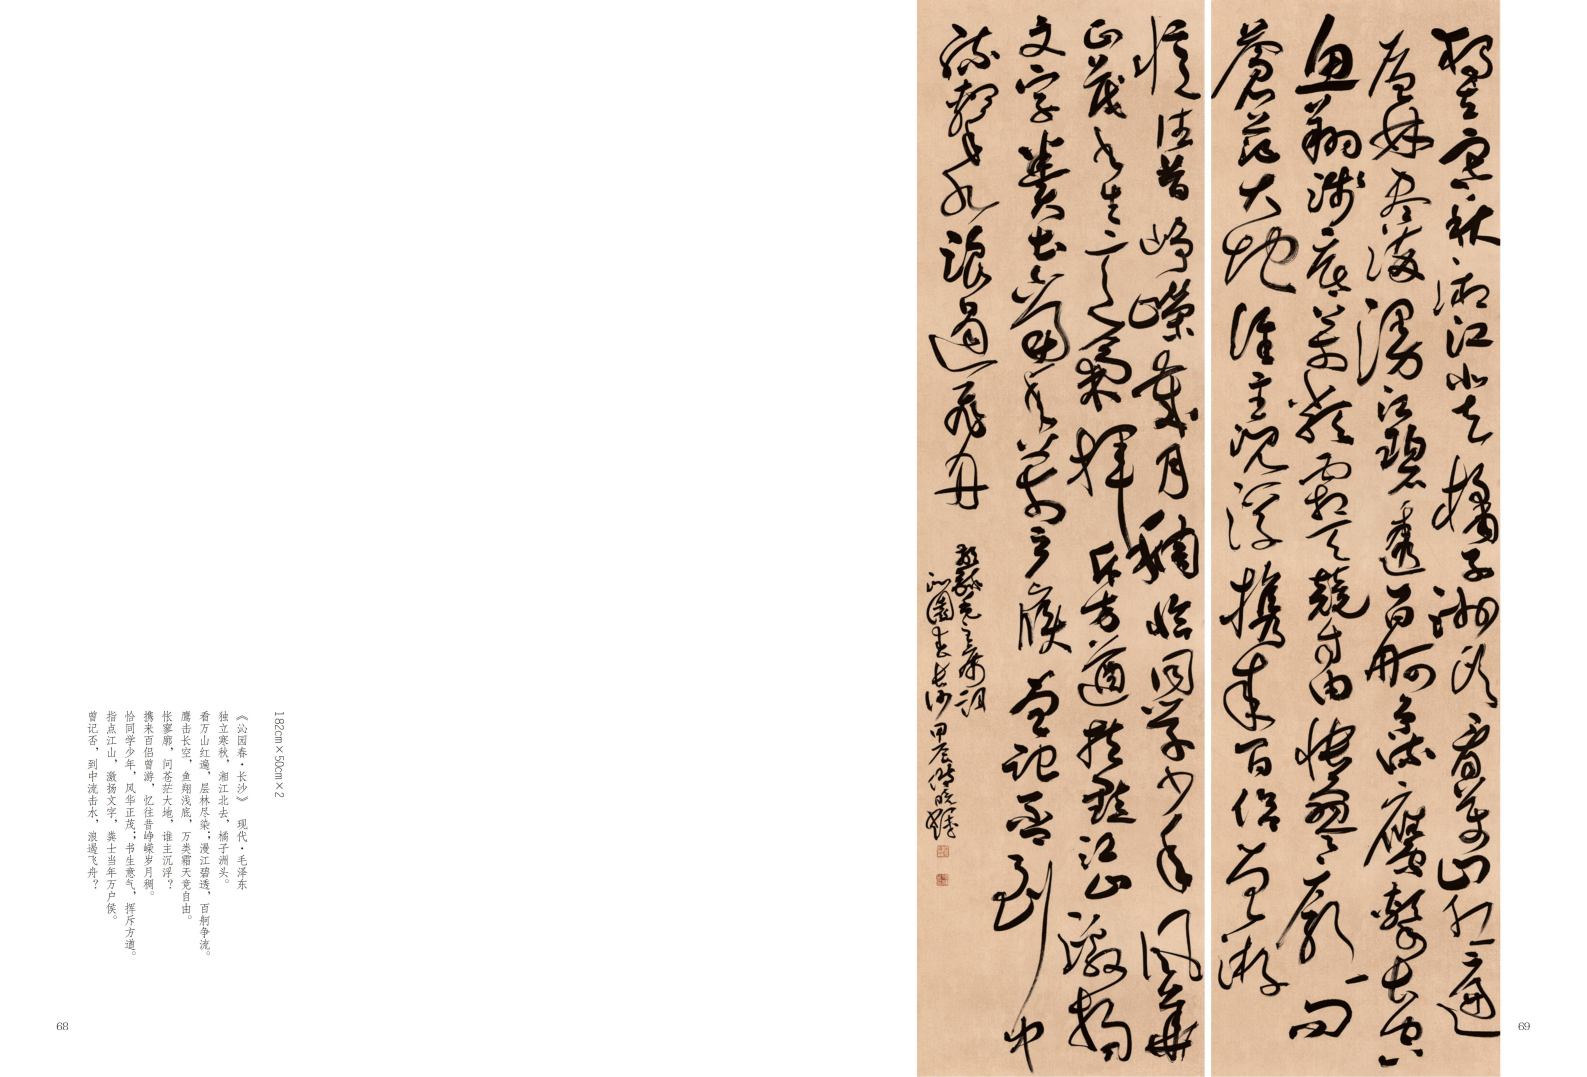 182cm×50cm×2
《沁园春·长沙》 现代·毛泽东
独立寒秋，湘江北去，橘子洲头。
看万山红遍，层林尽染；漫江碧透，百舸争流。
鹰击长空，鱼翔浅底，万类霜天竞自由。
怅寥廓，问苍茫大地，谁主沉浮？
携来百侣曾游，忆往昔峥嵘岁月稠。
恰同学少年，风华正茂；书生意气，挥斥方遒。
指点江山，激扬文字，粪土当年万户侯。
曾记否，到中流击水，浪遏飞舟？
68
獨立寒秋湘江北去橘子洲頭看萬山紅遍
層林盡染漫江碧透百舸爭流鷹擊長空
魚翔淺底萬類霜天競自由悵寥廓問
蒼茫大地誰主沉浮攜來百侶曾游
憶往昔崢嶸歲月稠恰同學少年風華
正茂書生意氣揮斥方遒指點江山激揚
文字糞土當年萬戶侯曾記否到中
流擊水浪遏飛舟
敬錄毛主席詞
沁園春長沙甲辰
69